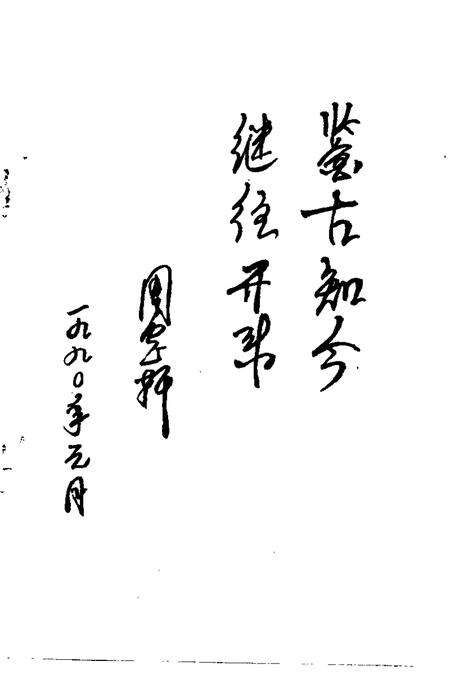 鉴古知今
继往开来
周宗轩
一九九〇年元月